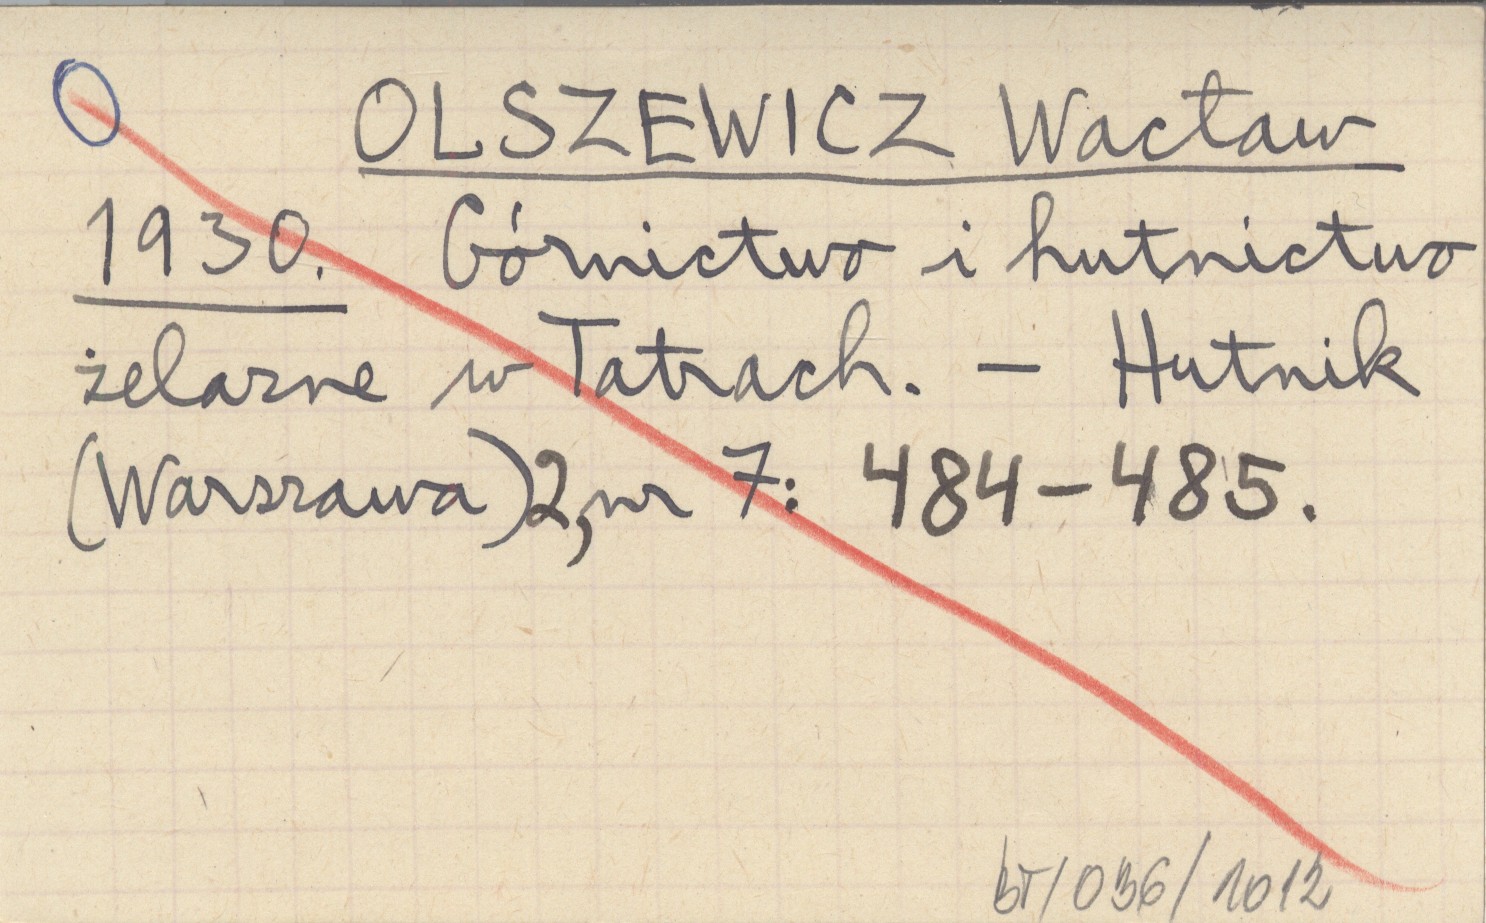 OLSZEWICZ Wacław
1930. Górnictwo i hutnictwo
żelazne w Tatrach. – Hutnik
(Warszawa) 2, nr 7: 484–485.
bT/036/1012